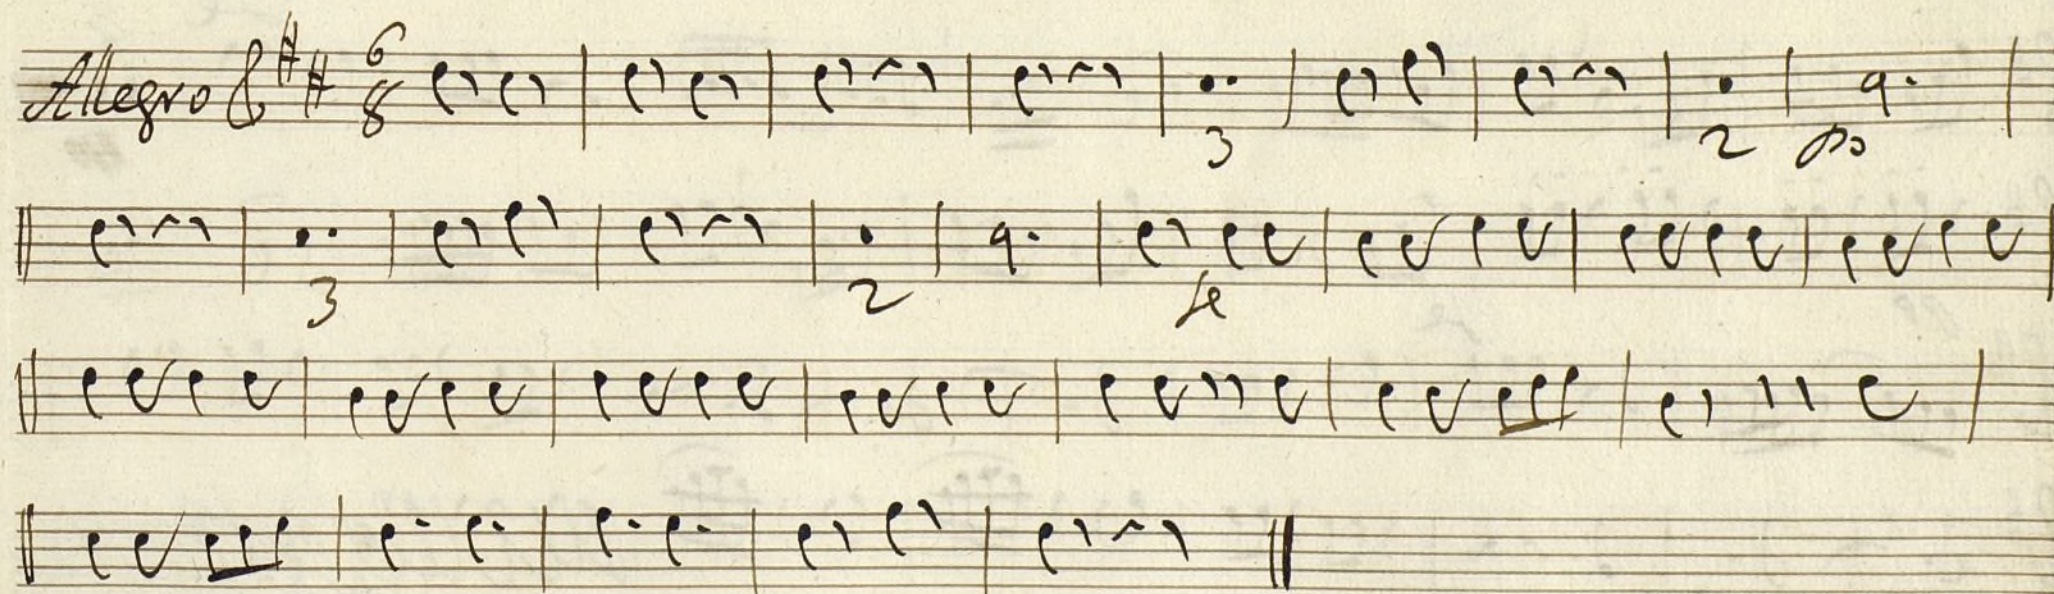 Allegro 6
8
3 2 po
3 2 fe